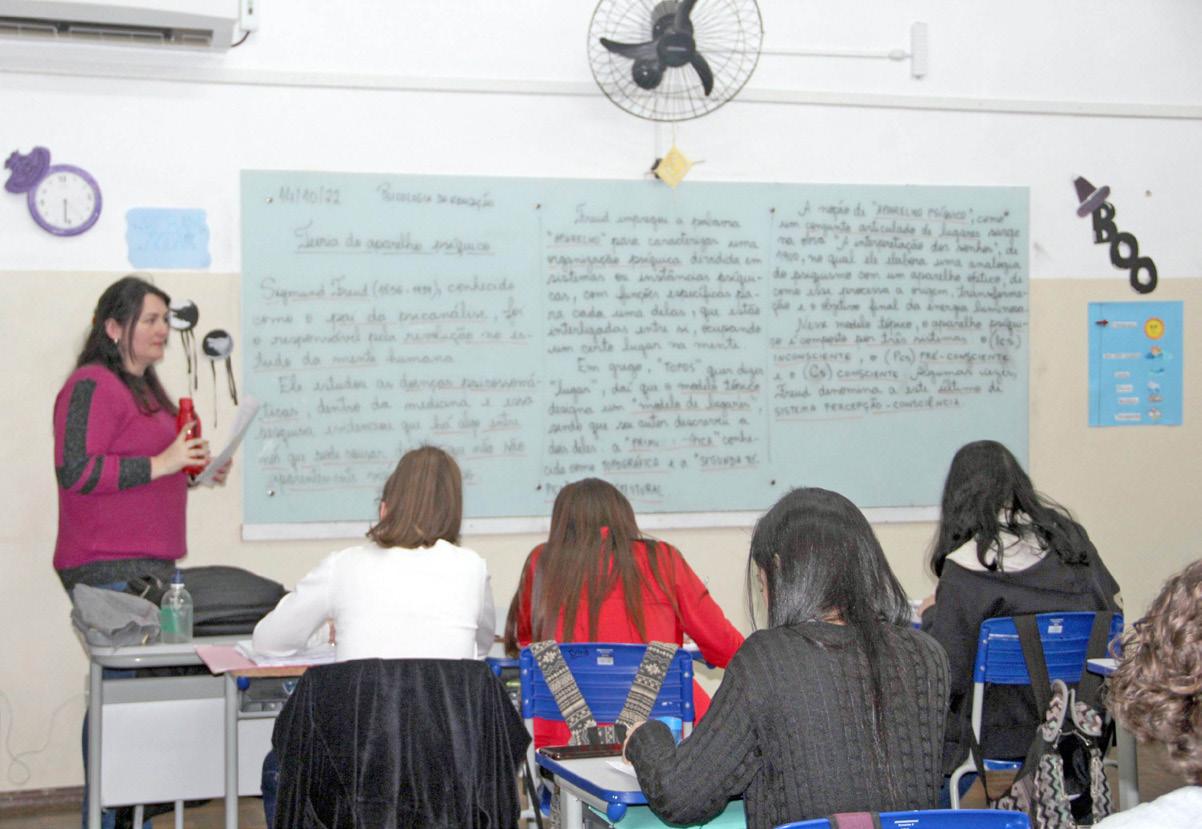 14/10/22 PSICOLOGIA DA EDUCAÇÃO
Teoria do aparelho psíquico
Sigmund Freud (1856-1939), conhecido
como o pai da psicanálise, foi
o responsável pela revolução no es-
tudo da mente humana.
Ele estudou as doenças psicossomá-
ticas, dentro da medicina e essa
pesquisa evidenciou que há algo entre
nós que pode causar que não são
aparentemente
Freud empregou a palavra
"APARELHO" para caracterizar uma
organização psíquica dividida em
sistemas ou instâncias psíqui-
cas, com funções específicas pa-
ra cada uma delas, que estão
interligadas entre si, ocupando
um certo lugar na mente.
Em grego, "TOPOS" quer dizer
"lugar", daí que o modelo tópico
designa um "modelo de lugares",
sendo que seu autor descreveu a
dois deles: a "PRIM PICA" conhe-
cida como TOPOGRÁFICA e a "SEGUNDA TÓ
A noção de "APARELHO PSÍQUICO", como
um conjunto articulado de lugares surge
na obra "A interpretação dos sonhos", de
1900, no qual ele elabora uma analogia
do psiquismo com um aparelho óptico, de
como esse processa a origem, transforma-
ção e o objetivo final da energia luminosa.
Nesse modelo tópico, o aparelho psíqui-
co é composto por três sistemas: o (Ics)
INCONSCIENTE, o (Pcs) PRÉ-CONSCIENTE
e o (Cs) CONSCIENTE. Algumas vezes,
Freud denomina a este último de
SISTEMA PERCEPÇÃO-CONSCIÊNCIA.
BOO